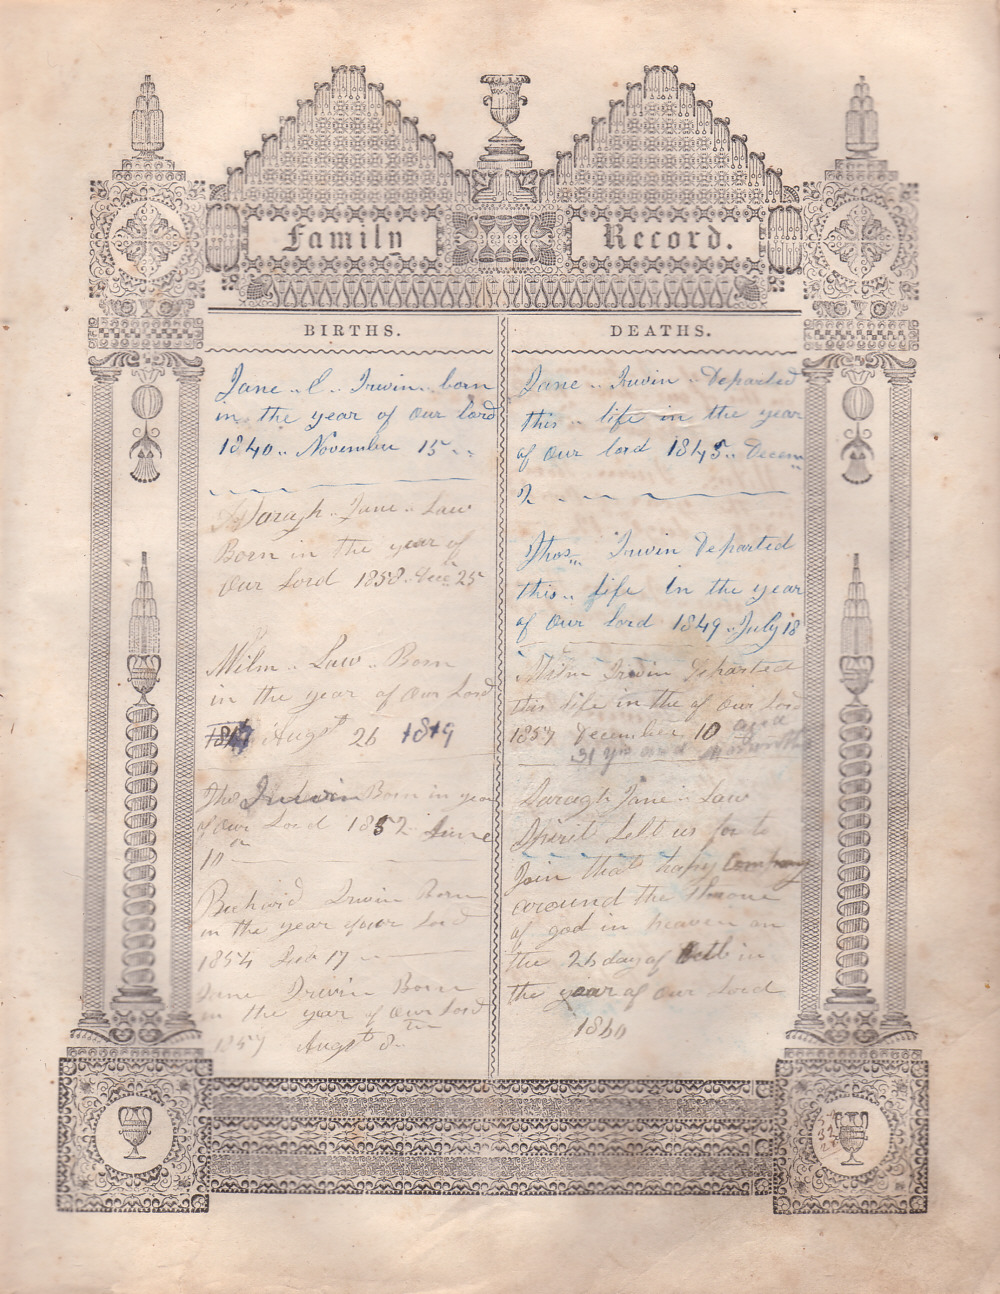 Family Record.
BIRTHS.
Jane .. C .. Irwin .. born
in the year of Our Lord
1840 .. November 15 ..
Daragh .. Jane .. Law
Born in the year of
Our Lord 1858 .. Dec 25
Milm .. Law .. Born
in the year of Our Lord
Augst 26 1819
Thos Irwin Born in year
of Our Lord 1852 June
10
Richard Irwin Born
in the year of our Lord
1854 Feb 17
Jane Irwin Born
in the year of Our Lord
1857 Augst 8
DEATHS.
Jane .. Irwin .. Departed
this .. life in the year
of Our lord 1845 .. Decem
2
Thos .. Irwin Departed
this .. life in the year
of Our Lord 1849 .. July 18
Milm Irwin Departed
this life in the of Our Lord
1857 December 10 aged
31 yrs and
Daragh Jane .. Law
Spirit left us for to
Join that happy Company
around the Throne
of god in heaven on
the 26 day of in
the year of Our Lord
1860